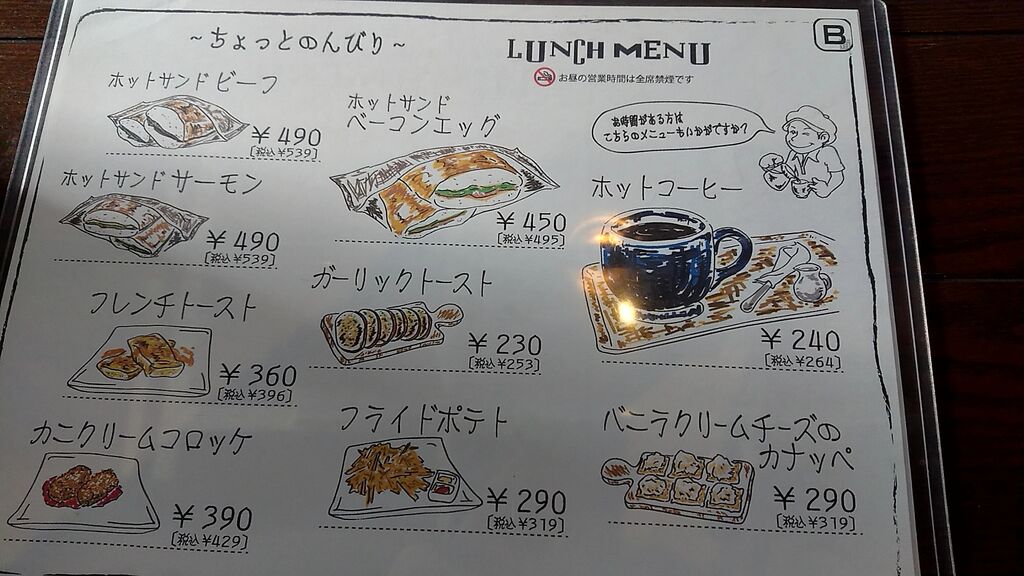 ～ちょっとのんびり～
LUNCH MENU
B
お昼の営業時間は全席禁煙です
お時間がある方は
こちらのメニューもいかがですか？
ホットサンド ビーフ
￥490
[税込￥539]
ホットサンド
ベーコンエッグ
￥450
[税込￥495]
ホットサンド サーモン
￥490
[税込￥539]
ホットコーヒー
￥240
[税込￥264]
ガーリックトースト
￥230
[税込￥253]
フレンチトースト
￥360
[税込￥396]
カニクリームコロッケ
￥390
[税込￥429]
フライドポテト
￥290
[税込￥319]
バニラクリームチーズの
カナッペ
￥290
[税込￥319]